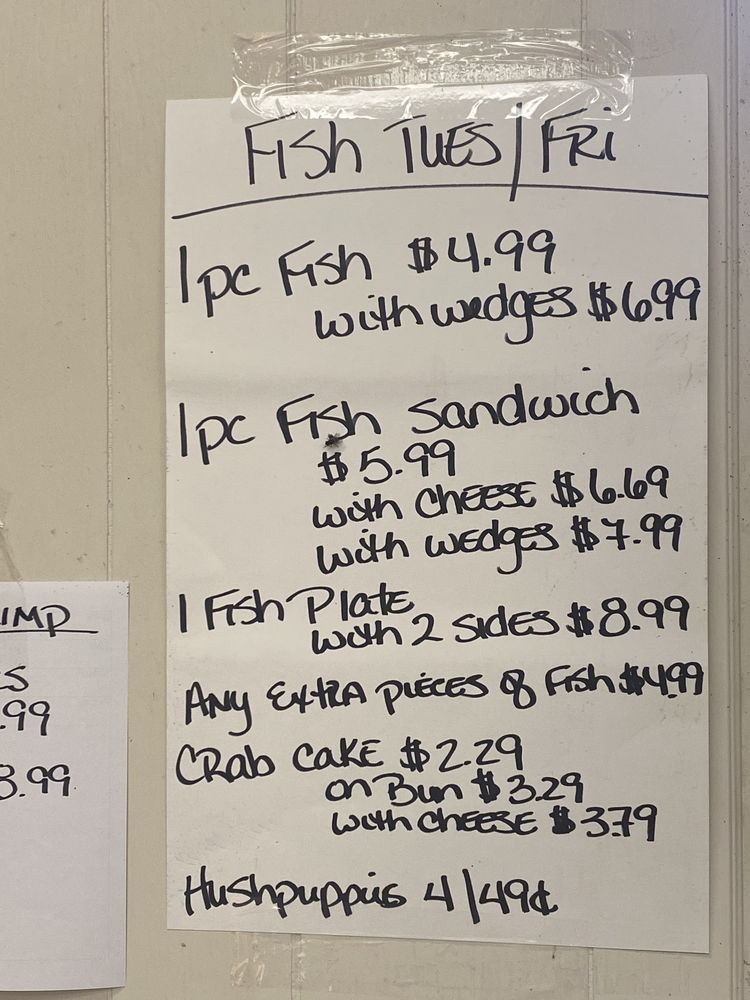 Fish TUES/FRi
1pc Fish $4.99
with wedges $6.99
1pc Fish Sandwich
$5.99
with CHEESE $6.69
with wedges $7.99
1 Fish Plate
with 2 sides $8.99
Any Extra pieces of Fish $4.99
CRab CaKE $2.29
on Bun $3.29
with CHEESE $3.79
Hushpuppies 4/49¢
IMP
ES
.99
8.99